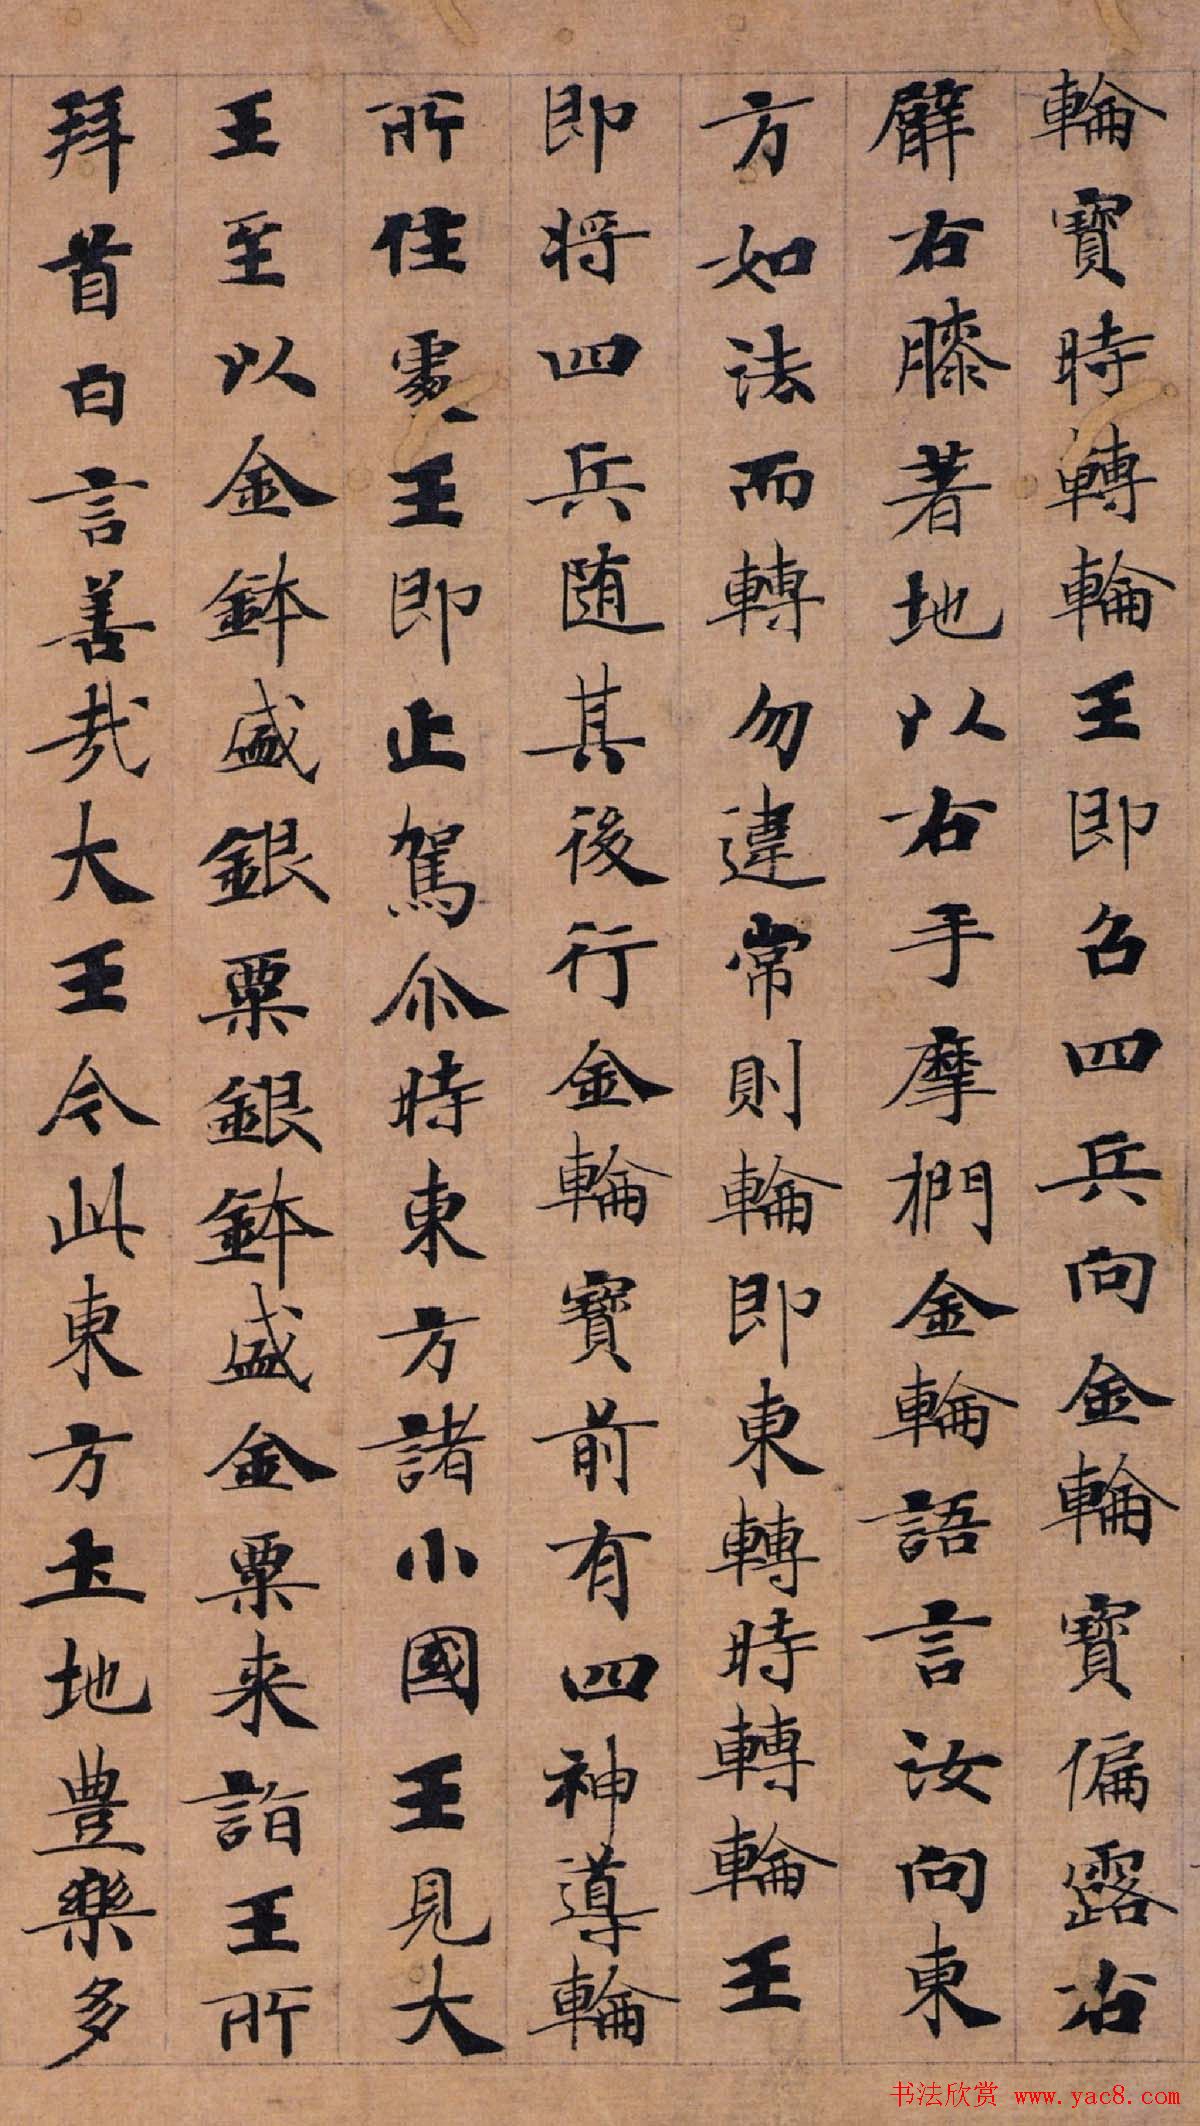 輪寳時轉輪王即召四兵向金輪寳偏露右
臂右膝著地以右手摩捫金輪語言汝向東
方如法而轉勿違常則輪即東轉時轉輪王
即将四兵随其後行金輪寳前有四神導輪
所住處王即止駕尒時東方諸小國王見大
王至以金鉢盛銀粟銀鉢盛金粟来詣王所
拜首白言善哉大王今此東方土地豊樂多
书法欣赏 www.yac8.com